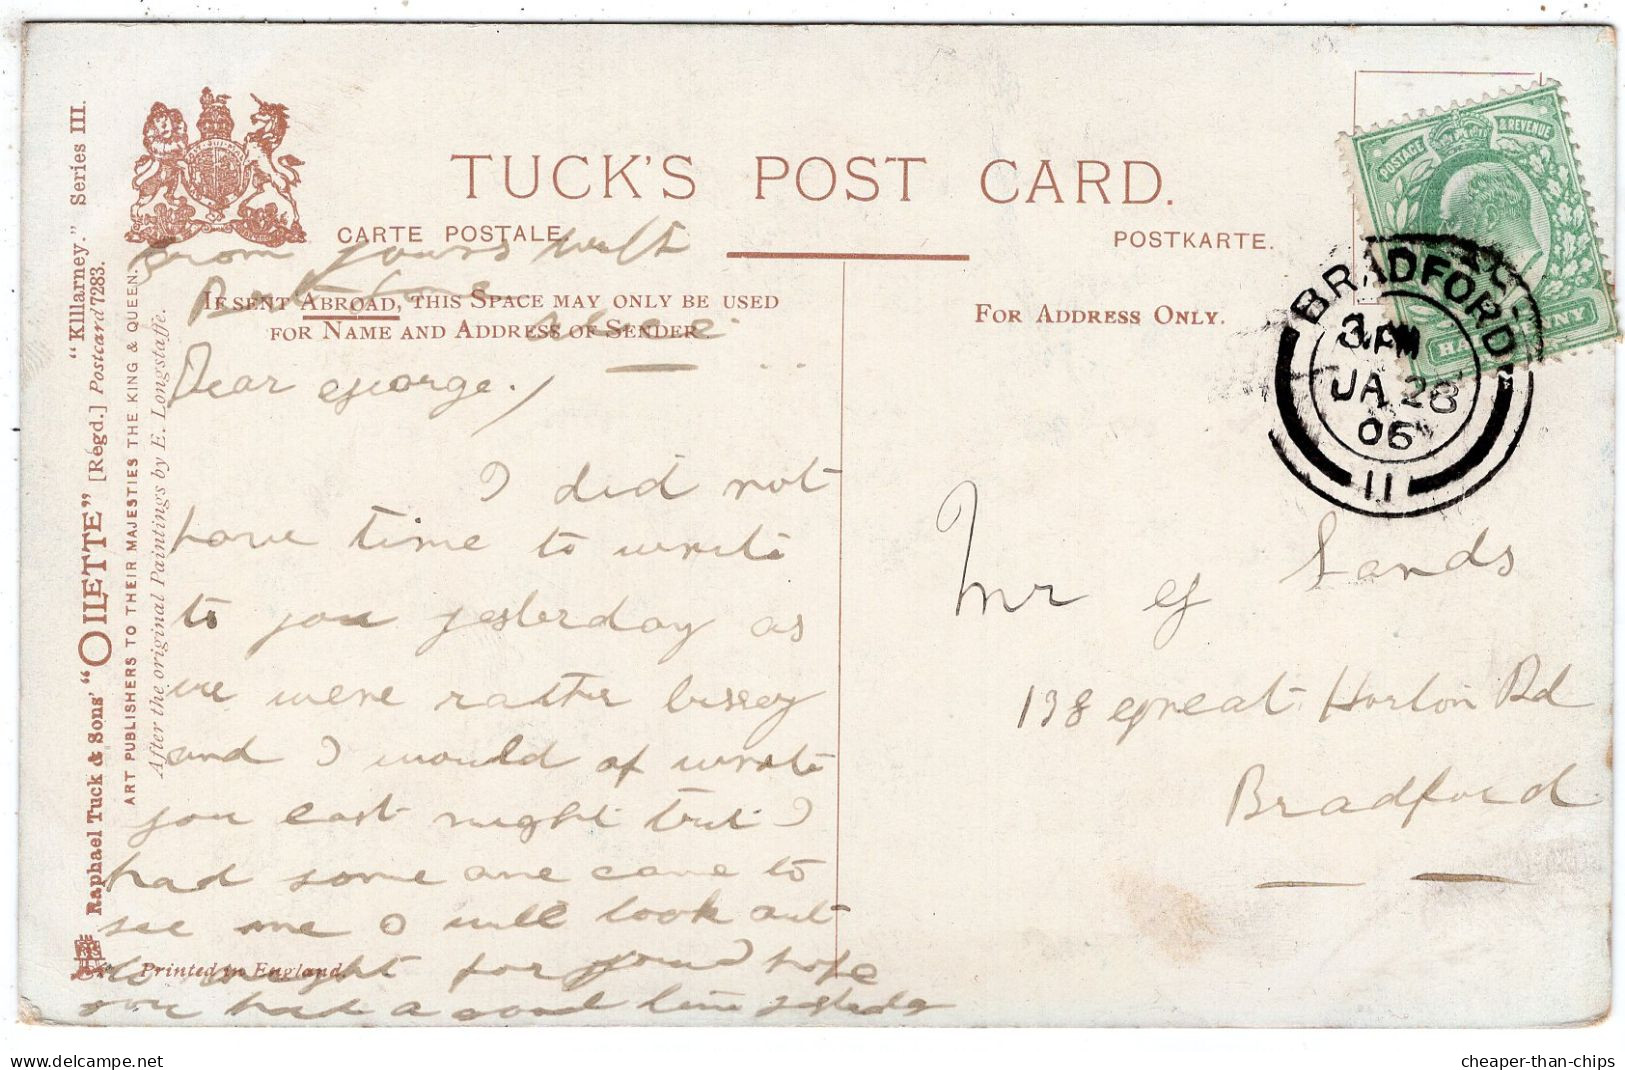 TUCK'S POST CARD.
CARTE POSTALE
POSTKARTE.
IF SENT ABROAD, THIS SPACE MAY ONLY BE USED
FOR NAME AND ADDRESS OF SENDER.
FOR ADDRESS ONLY.
"Killarney." Series III.
Raphael Tuck & Sons' "OILETTE" [Regd.] Postcard 7283.
ART PUBLISHERS TO THEIR MAJESTIES THE KING & QUEEN.
After the original Paintings by E. Longstaffe.
Printed in England
POSTAGE & REVENUE
BRADFORD
3 PM
JA 28
06
11
from yours with
Dear George,
I did not
have time to write
to you yesterday as
we were rather bissey
and I would of write
you last night but I
had some one came to
see me I will look out
to night for you I hope
you had a good time yesterday
Mr G Sands
198 Great Horton Rd
Bradford
cheaper-than-chips